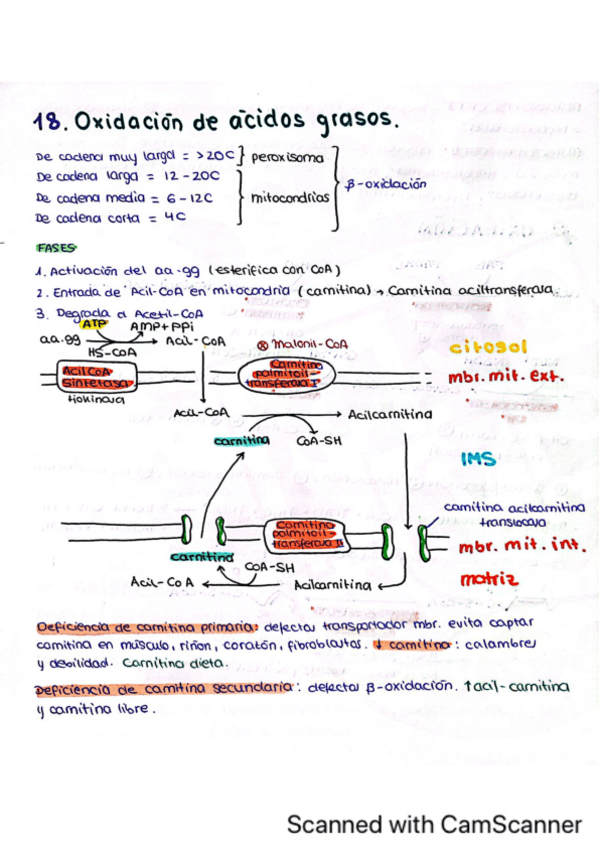 18. Oxidación de ácidos grasos.
De cadena muy larga = >20C } peroxisoma
De cadena larga = 12-20C
De cadena media = 6-12C } mitocondrias
De cadena corta = 4C
β-oxidación
FASES
1. Activación del aa.gg (esterifica con CoA)
2. Entrada de Acil-CoA en mitocondria (carnitina) → Carnitina aciltransferasa.
3. Degrada a Acetil-CoA
ATP AMP+PPi
aa.gg → Acil-CoA ⊗ Malonil-CoA citosol
HS-CoA
Acil CoA sintetasa
Carnitina palmitoil-transferasa I
mbr. mit. ext.
tiokinasa
Acil-CoA → Acilcarnitina
carnitina CoA-SH
IMS
carnitina acilcarnitina translocasa
Carnitina palmitoil-transferasa II
mbr. mit. int.
carnitina
CoA-SH
Acil-CoA ← Acilcarnitina ←
matriz
Deficiencia de carnitina primaria: defectos transportador mbr. evita captar
carnitina en músculo, riñon, corazón, fibroblastos. ↓ carnitina: calambres
y debilidad. Carnitina dieta.
Deficiencia de carnitina secundaria: defectos β-oxidación. ↑acil-carnitina
y carnitina libre.
Scanned with CamScanner